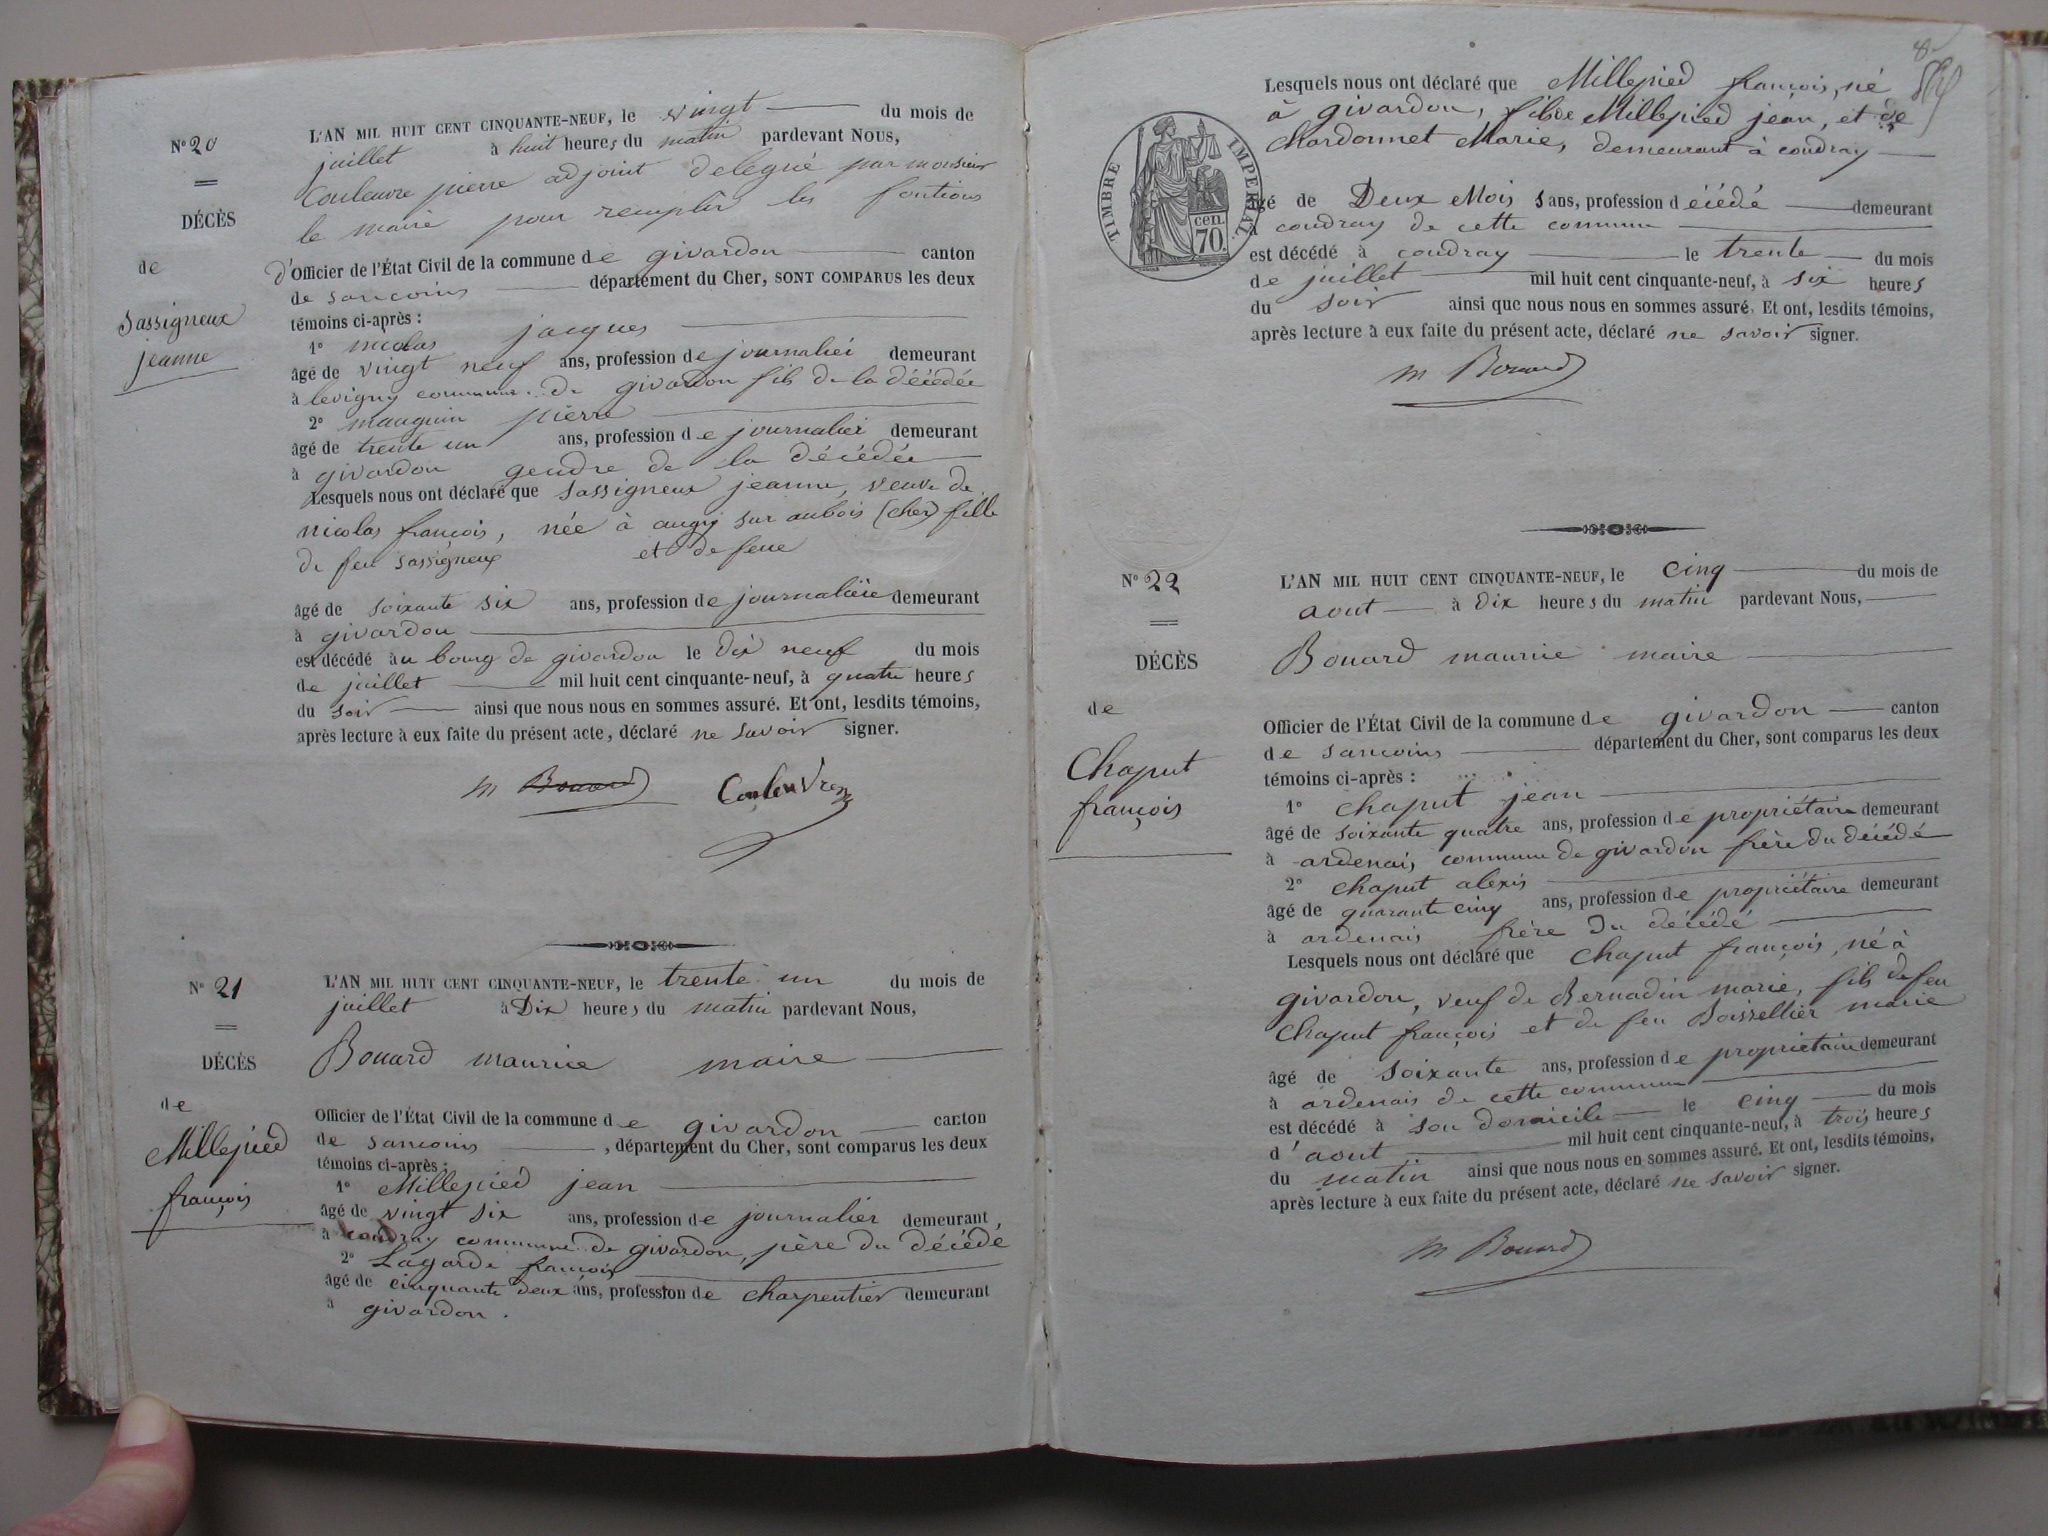 N° 20
DÉCÈS
de
Sassigneux
jeanne
L'AN MIL HUIT CENT CINQUANTE-NEUF, le vingt du mois de
juillet à huit heures du matin pardevant NOUS,
Couleuvre pierre adjoint delegué par monsieur
le maire pour remplir les fontions
d'Officier de l'État Civil de la commune de givardon canton
de sancoins département du Cher, SONT COMPARUS les deux
témoins ci-après :
1° nicolas jacques
âgé de vingt neuf ans, profession de journalier demeurant
à levigny commune de givardon fils de la décédée
2° mauguin pierre
âgé de trente un ans, profession de journalier demeurant
à givardon gendre de la décédée
Lesquels nous ont déclaré que Sassigneux jeanne, veuve de
nicolas françois, née à augy sur aubois (cher) fille
de feu sassigneux et de feue
âgé de soixante six ans, profession de journalière demeurant
à givardon
est décédé au bourg de givardon le dix neuf du mois
de juillet mil huit cent cinquante-neuf, à quatre heures
du soir ainsi que nous nous en sommes assuré. Et ont, lesdits témoins,
après lecture à eux faite du présent acte, déclaré ne savoir signer.
m Bouard Couleuvre
N° 21
DÉCÈS
de
Millepied
françois
L'AN MIL HUIT CENT CINQUANTE-NEUF, le trente un du mois de
juillet à Dix heures du matin pardevant Nous,
Bouard maurice maire
Officier de l'État Civil de la commune de givardon canton
de sancoins, département du Cher, sont comparus les deux
témoins ci-après :
1° Millepied jean
âgé de vingt six ans, profession de journalier demeurant,
à coudray commune de givardon, père du décédé
2° Lagarde françois
âgé de cinquante deux ans, profession de charpentier demeurant
à givardon.
8
Lesquels nous ont déclaré que Millepied françois, né
à givardon, fils de Millepied jean, et de
Chardonnet Marie, demeurant à coudray
TIMBRE IMPERIAL.
cen.
70.
âgé de Deux Mois s ans, profession d écédé demeurant
à coudray de cette commune
est décédé à coudray le trente du mois
de juillet mil huit cent cinquante-neuf, à six heures
du soir ainsi que nous nous en sommes assuré. Et ont, lesdits témoins,
après lecture à eux faite du présent acte, déclaré ne savoir signer.
m Bouard
N° 22
DÉCÈS
de
Chaput
françois
L'AN MIL HUIT CENT CINQUANTE-NEUF, le cinq du mois de
aout à Dix heures du matin pardevant Nous,
Bouard maurice maire
Officier de l'État Civil de la commune de givardon canton
de sancoins département du Cher, sont comparus les deux
témoins ci-après :
1° Chaput jean
âgé de soixante quatre ans, profession de propriétaire demeurant
à ardenais commune de givardon frère du décédé
2° Chaput alexis
âgé de quarante cinq ans, profession de propriétaire demeurant
à ardenais frère du décédé
Lesquels nous ont déclaré que Chaput françois, né à
givardon, veuf de Bernadin marie, fils de feu
Chaput françois et de feu Boissellier marie
âgé de soixante ans, profession de propriétaire demeurant
à ardenais de cette commune
est décédé à son domicile le cinq du mois
d'aout mil huit cent cinquante-neuf, à trois heures
du matin ainsi que nous nous en sommes assuré. Et ont, lesdits témoins,
après lecture à eux faite du présent acte, déclaré ne savoir signer.
m Bouard